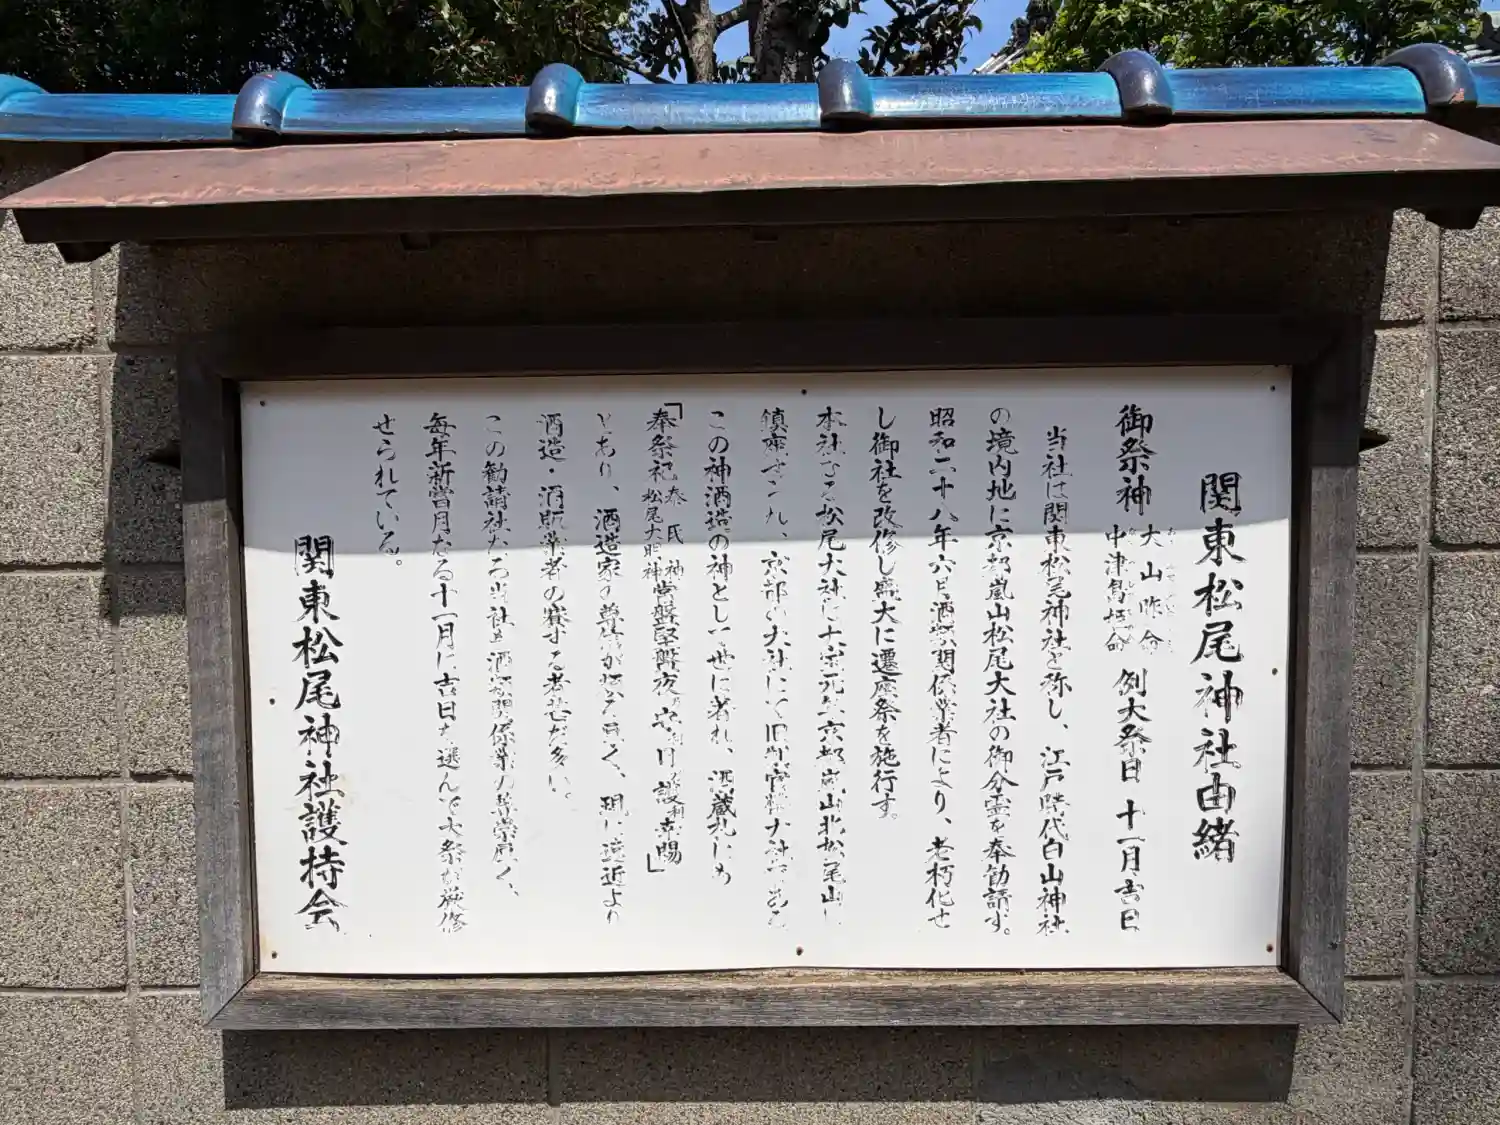 関東松尾神社由緒
御祭神 大山咋命 中津島姫命 例大祭日 十一月吉日
当社は関東松尾神社と称し、江戸時代白山神社
の境内地に京都嵐山松尾大社の御分霊を奉勧請す。
昭和二十八年六月酒類関係業者により、老朽化せ
し御社を改修し盛大に遷座祭を施行す。
本社なる松尾大社は大宝元年京都嵐山北松尾山に
鎮座され、京都の大社にて旧官幣大社である
この神酒造の神として世に著れ、酒蔵札にも
「奉祭祀 秦氏神 松尾大明神 常盤堅磐夜 守 護 幸賜」
とあり、酒造家の尊信が極る厚く、現に遠近より
酒造・酒販業者の賽する者甚だ多い。
この勧請社なる当社も酒類関係業の尊崇厚く、
毎年新嘗月なる十一月に吉日を選んで大祭が厳修
せられている。
関東松尾神社護持会